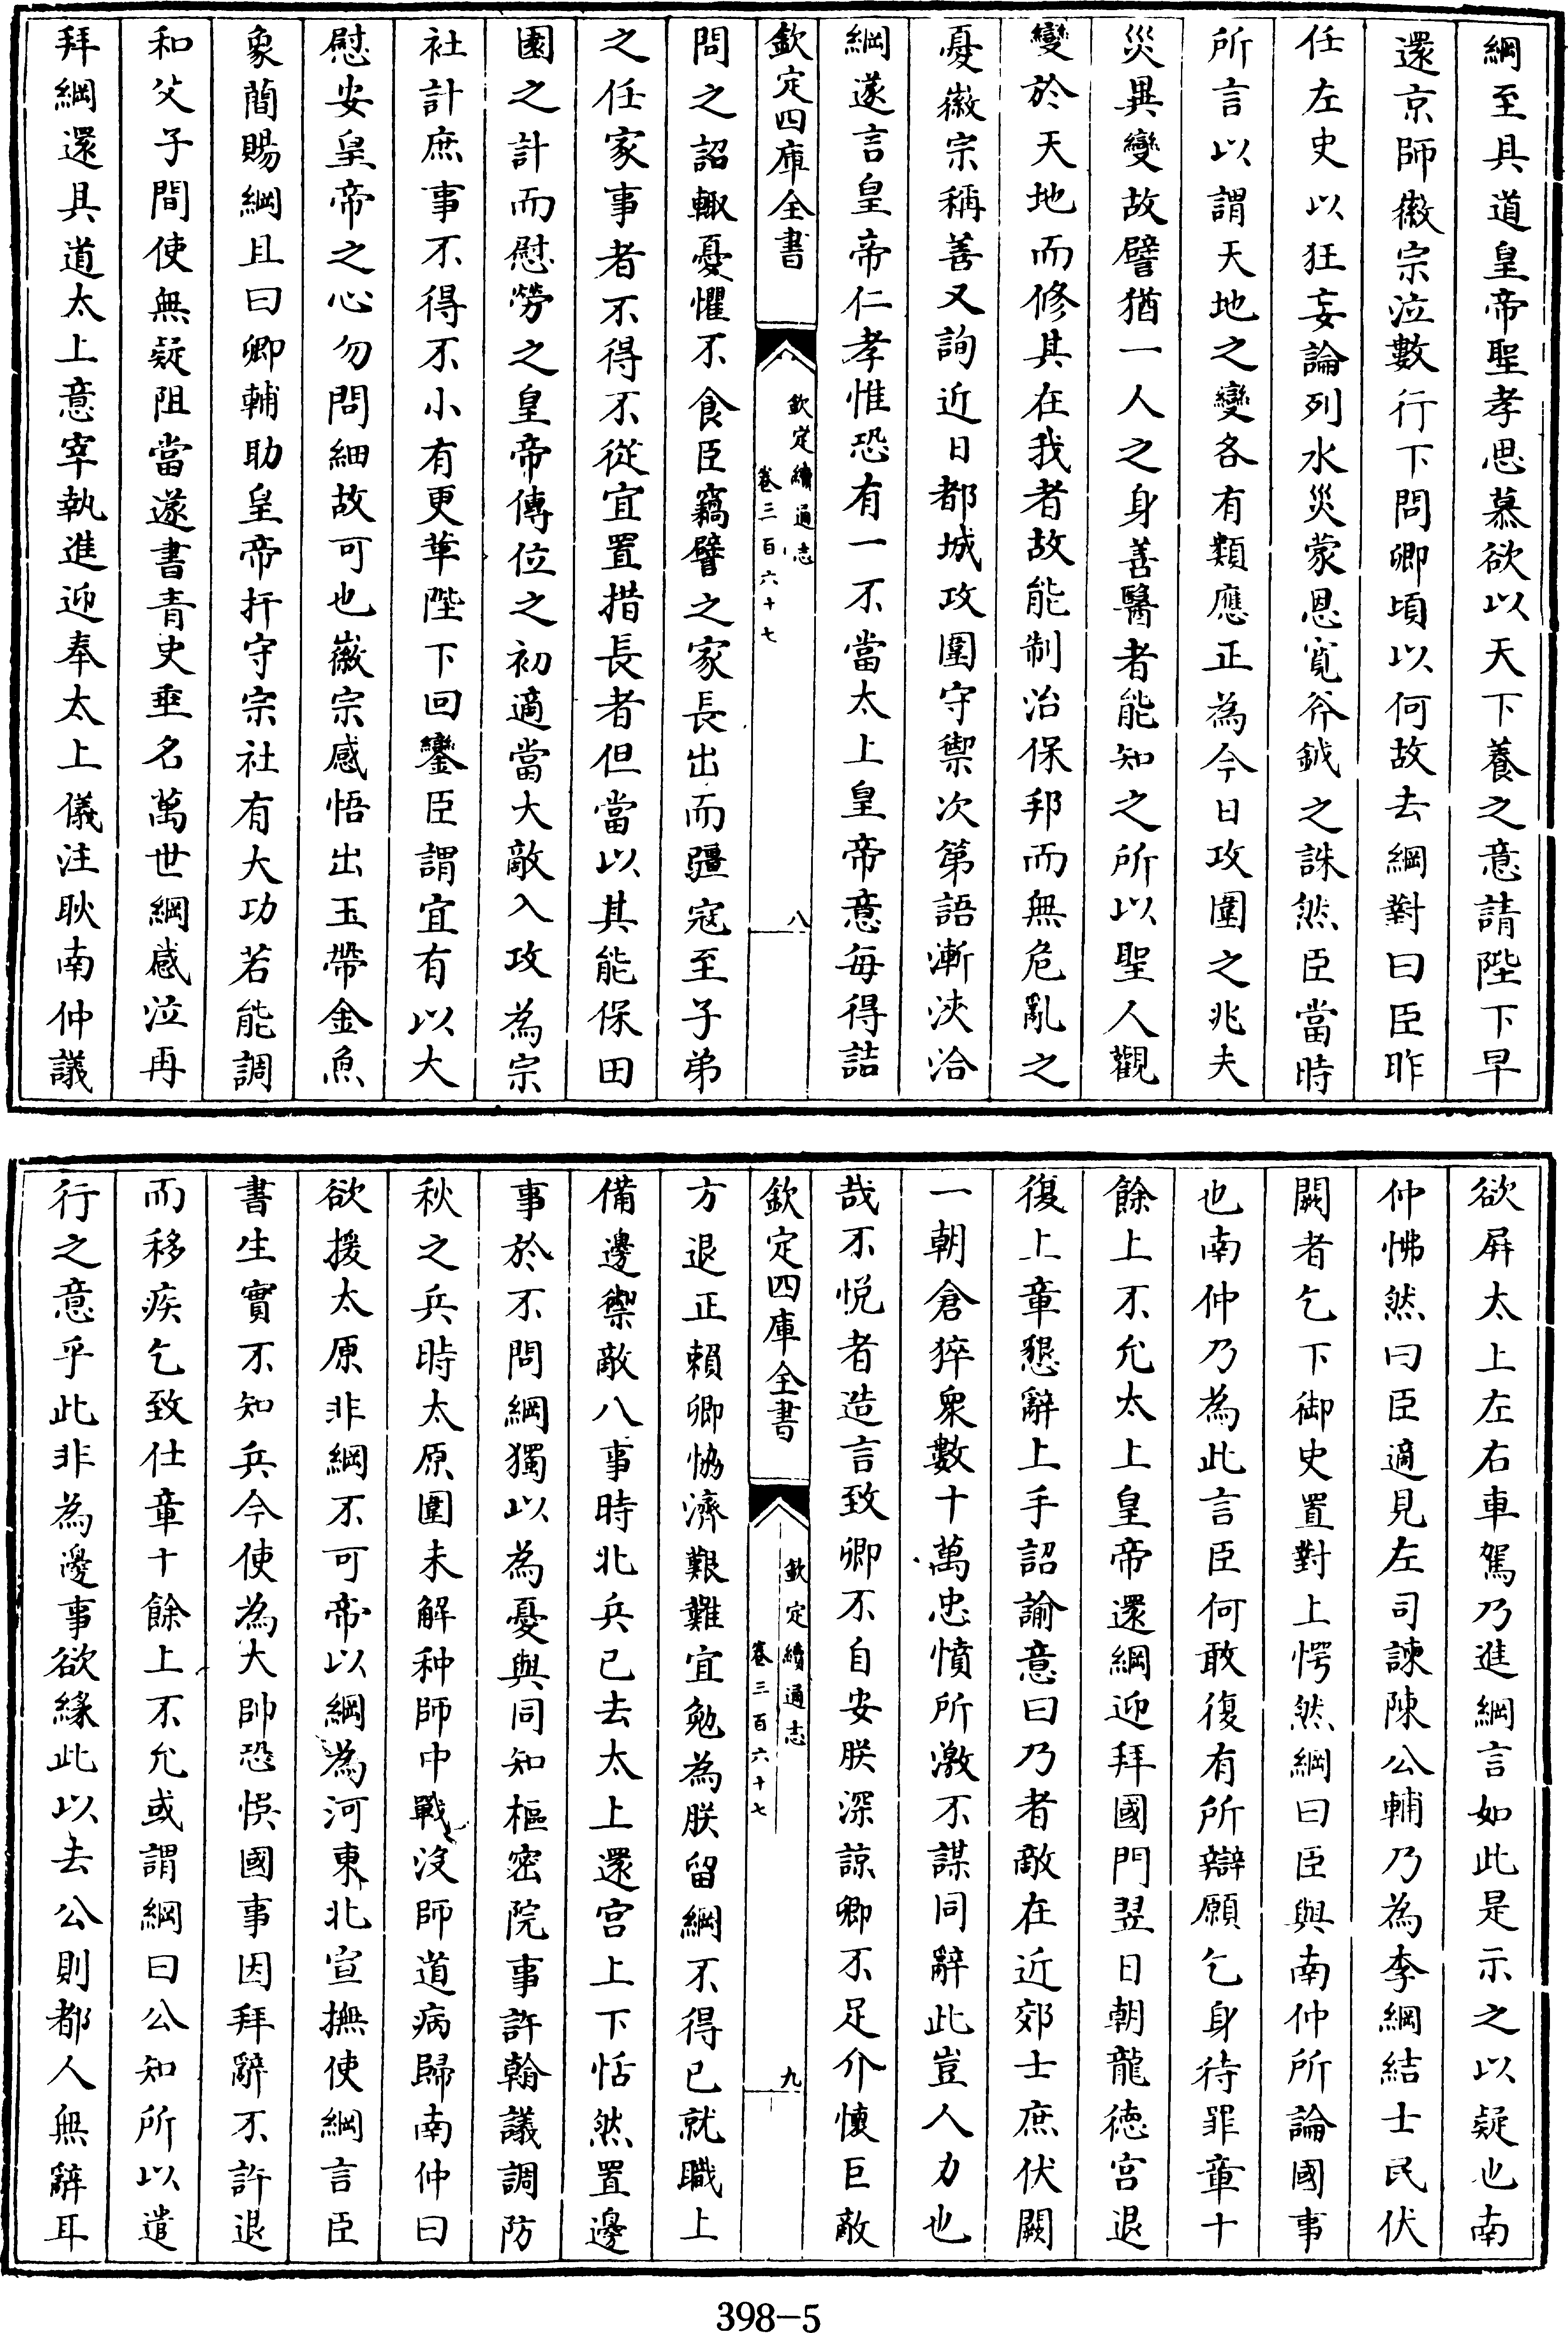 綱至具道皇帝聖孝思慕欲以天下養之意請陛下早
還京師徽宗泣數行下問卿頃以何故去綱對曰臣昨
任左史以狂妄論列水災蒙恩寬斧鉞之誅然臣當時
所言以謂天地之變各有類應正為今日攻圍之兆夫
災異變故譬猶一人之身善醫者能知之所以聖人觀
變於天地而修其在我者故能制治保邦而無危亂之
憂徽宗稱善又詢近日都城攻圍守禦次第語漸浹洽
綱遂言皇帝仁孝惟恐有一不當太上皇帝意每得詰
欽定四庫全書
欽定續通志
卷三百六十七
八
問之詔輙憂懼不食臣竊譬之家長出而疆寇至子弟
之任家事者不得不從宜置措長者但當以其能保田
園之計而慰勞之皇帝傳位之初適當大敵入攻為宗
社計庶事不得不小有更革陛下回鑾臣謂宜有以大
慰安皇帝之心勿問細故可也徽宗感悟出玉帶金魚
象簡賜綱且曰卿輔助皇帝扞守宗社有大功若能調
和父子間使無疑阻當遂書青史垂名萬世綱感泣再
拜綱還具道太上意宰執進迎奉太上儀注耿南仲議
欲屏太上左右車駕乃進綱言如此是示之以疑也南
仲怫然曰臣適見左司諫陳公輔乃為李綱結士民伏
闕者乞下御史置對上愕然綱曰臣與南仲所論國事
也南仲乃為此言臣何敢復有所辯願乞身待罪章十
餘上不允太上皇帝還綱迎拜國門翌日朝龍德宮退
復上章懇辭上手詔諭意曰乃者敵在近郊士庶伏闕
一朝倉猝衆數十萬忠憤所激不謀同辭此豈人力也
哉不悅者造言致卿不自安朕深諒卿不足介懷巨敵
欽定四庫全書
欽定續通志
卷三百六十七
九
方退正賴卿恊濟艱難宜勉為朕留綱不得已就職上
備邊禦敵八事時北兵已去太上還宮上下恬然置邊
事於不問綱獨以為憂與同知樞密院事許翰議調防
秋之兵時太原圍未解种師中戰沒師道病歸南仲曰
欲援太原非綱不可帝以綱為河東北宣撫使綱言臣
書生實不知兵今使為大帥恐悞國事因拜辭不許退
而移疾乞致仕章十餘上不允或謂綱曰公知所以遣
行之意乎此非為邊事欲緣此以去公則都人無辭耳
398-5